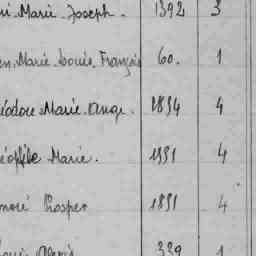 Marie Joseph. 1392 3
Marie Louise François 60. 1
éodore Marie Ange. 1834 4
éophile Marie. 1931 4
noré Prosper 1851 4
339 1